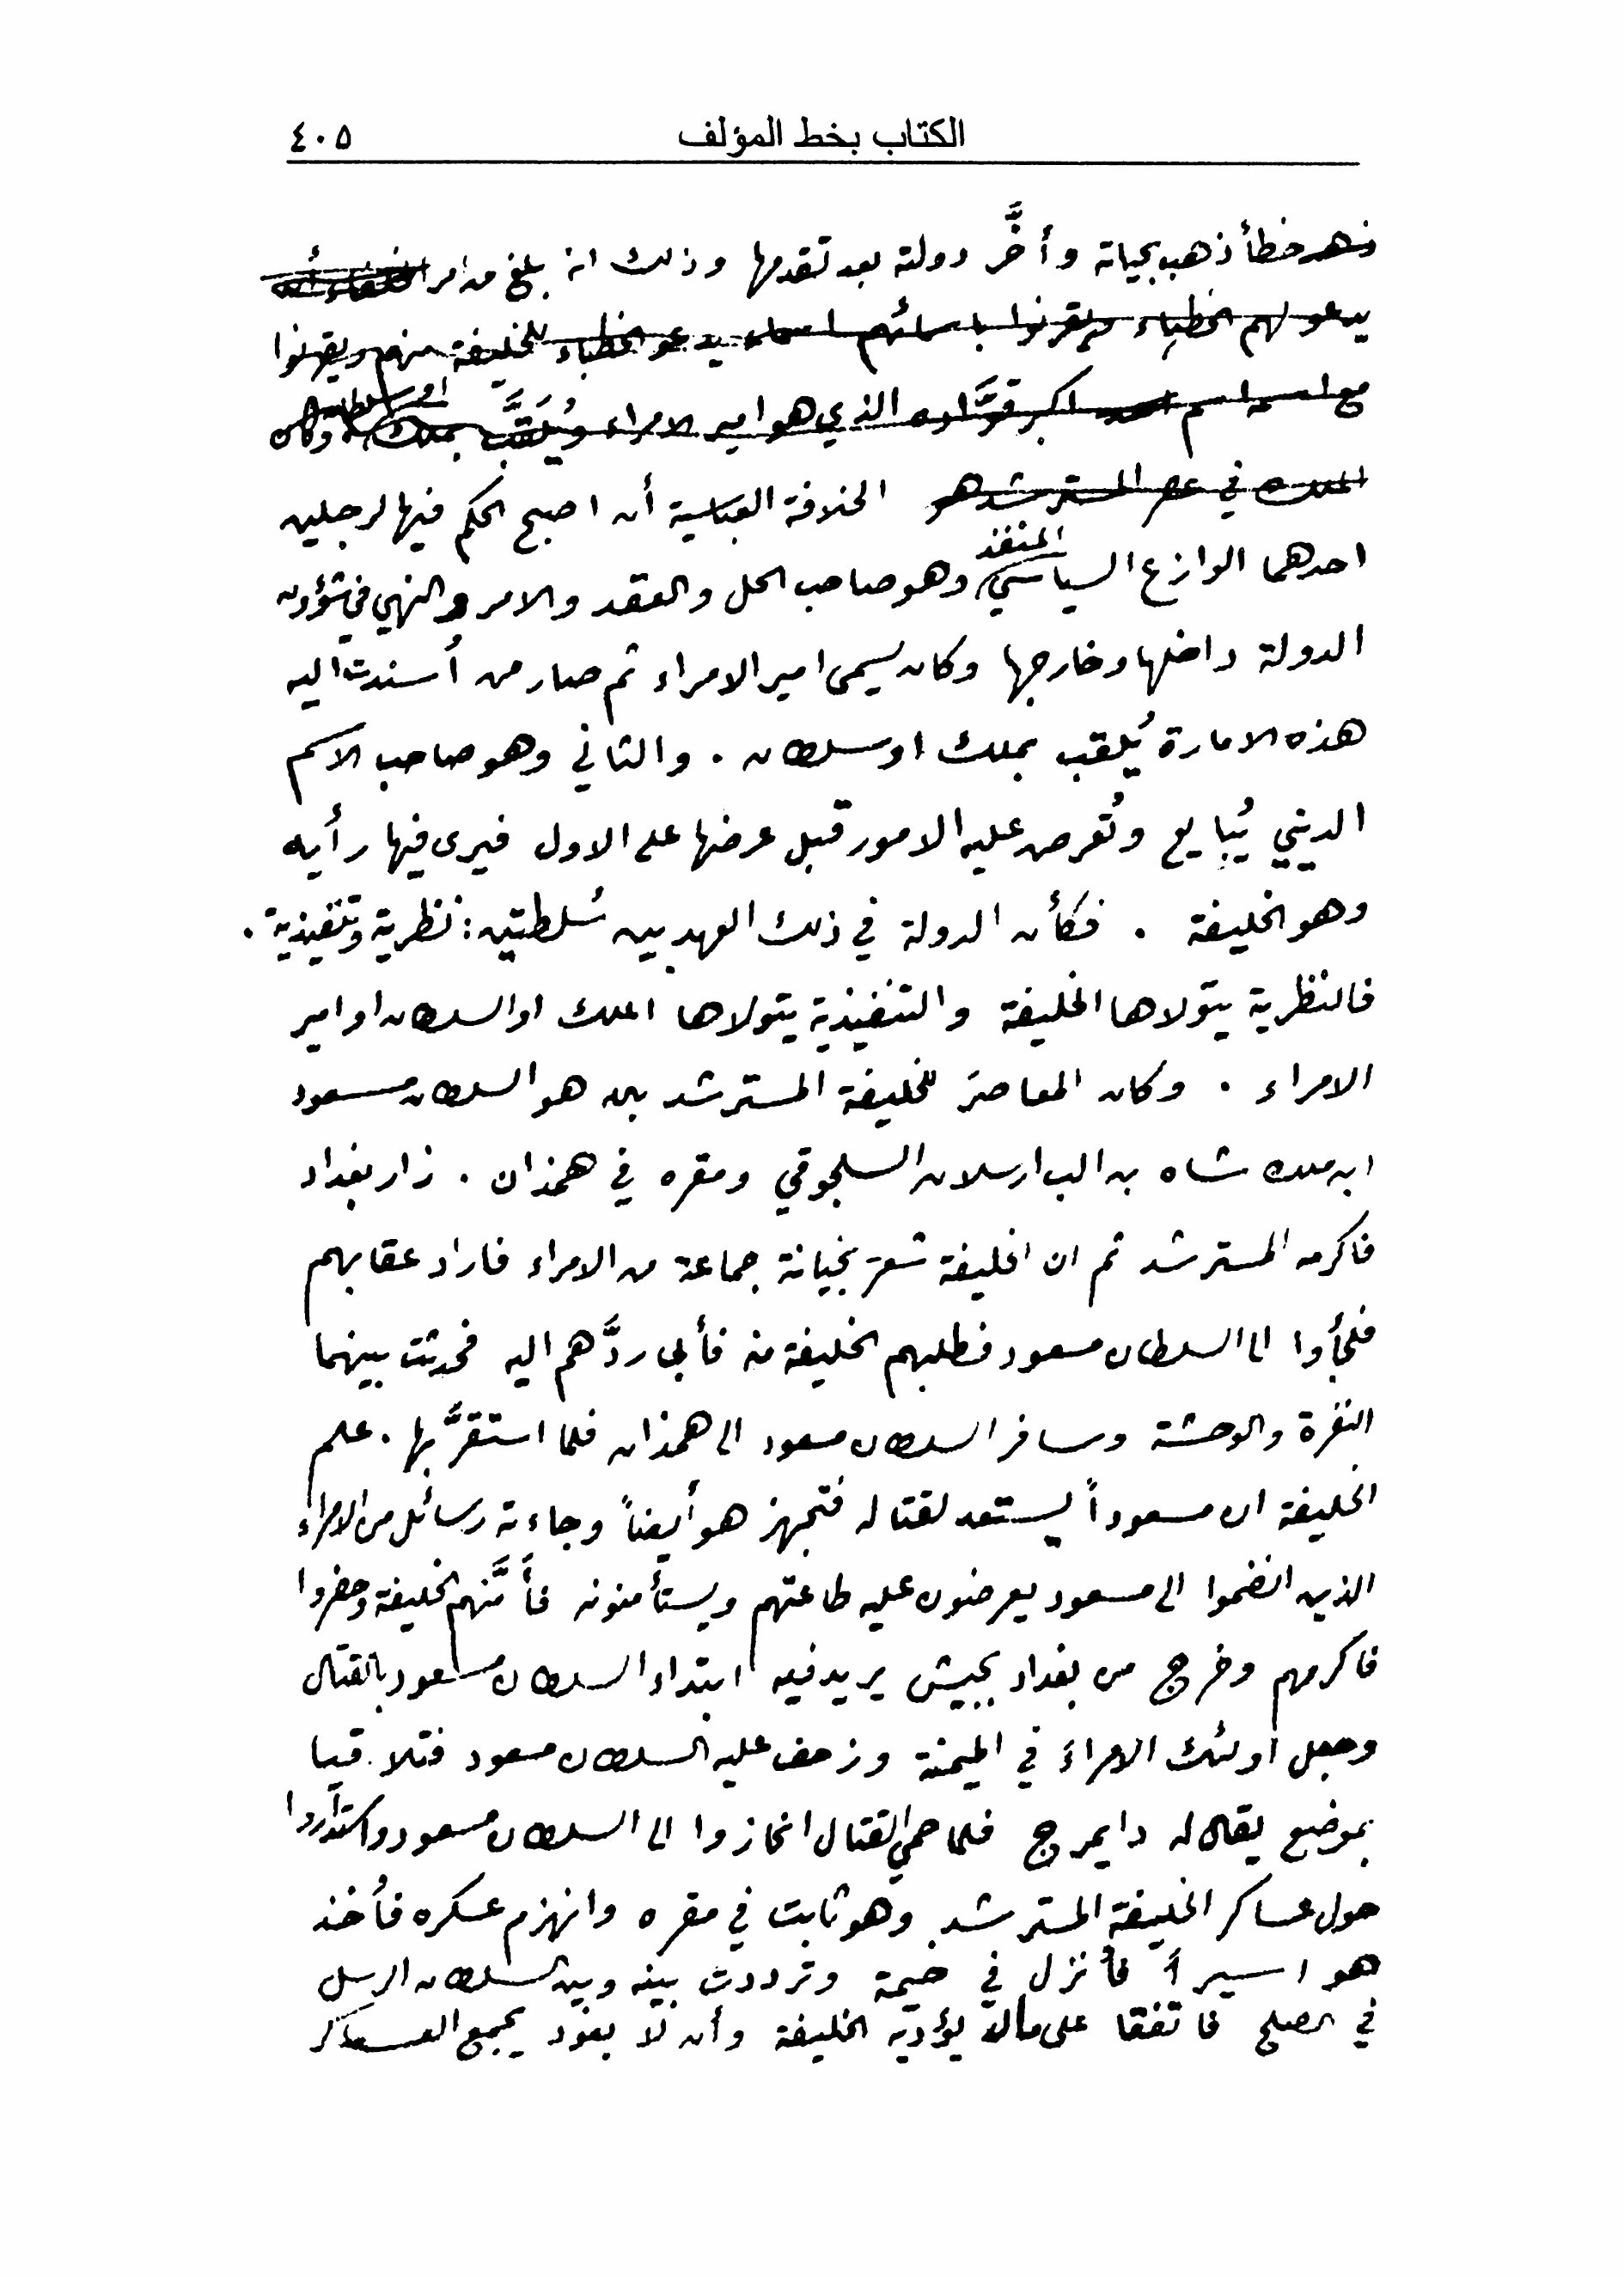 الكتاب بخط المؤلف
٤٠٥
خطأ ذهب بحياته وأخَّر دولته بعد تقدمها وذلك انه بلغ من امر الخلفاء أن
يدعو لهم الخطباء ويقرنوا باسمائهم اسماء يدعو الخطباء للخليفة منهم ويقرنوا
مع اسمه اسم احد اكبر قوَّاده الذي هو امير الامراء ويُلَقَّب بملك او سلطان وكان
الملك في عصر المسترشد هو الخلافة العباسية أن اصبح الحكم فيها لرجلين
احدهما الوازع السياسي المنفذ وهو صاحب الحل والعقد والامر والنهي في شؤون
الدولة داخلها وخارجها وكان يسمى امير الامراء ثم صار من أُسندت اليه
هذه الامارة يُلقب بملك او سلطان . والثاني وهو صاحب الاسم
الديني يُبايع وتُعرض عليه الامور قبل عرضها على الاول فيرى فيها رأيه
وهو الخليفة . فكأن الدولة في ذلك العهد بين سُلطتين : نظرية وتنفيذية .
فالنظرية يتولاها الخليفة والتنفيذية يتولاها الملك او السلطان او امير
الامراء . وكان المعاصر للخليفة المسترشد بالله هو السلطان مسعود
ابن ملك شاه بن الب ارسلان السلجوقي ومقره في همذان . زار بغداد
فاكرمه المسترشد ثم ان الخليفة شعر بخيانة جماعة من الامراء فاراد عقابهم
فلجأوا الى السلطان مسعود فطلبهم الخليفة منه فأبى ردَّهم اليه فحدثت بينهما
النفرة والوحشة وسافر السلطان مسعود الى همذان فلما استقرَّ بها . علم
الخليفة ان مسعوداً يستعد لقتاله فتجهز هو أيضاً وجاءته رسائل من الامراء
الذين انضموا الى مسعود يعرضون عليه طاعتهم ويستأمنونه فأمَّنهم الخليفة وحضروا
فاكرمهم وخرج من بغداد بجيش يريد فيه ابتداء السلطان مسعود بالقتال
وجعل اولئك الامراءَ في الميمنة وزحف عليه السلطان مسعود فتلاقيا
بموضع يقال له دايمرج فلما حمي القتال انحازوا الى السلطان مسعود واستداروا
حول عساكر الخليفة المسترشد وهو ثابت في مقره وانهزم عسكره فأُخذ
هو اسيراً فأُنزل في خيمة وترددت بينه وبين السلطان الرسل
في الصلح فاتفقا على مال يؤديه الخليفة وأن لا يعود يجمع العساكر